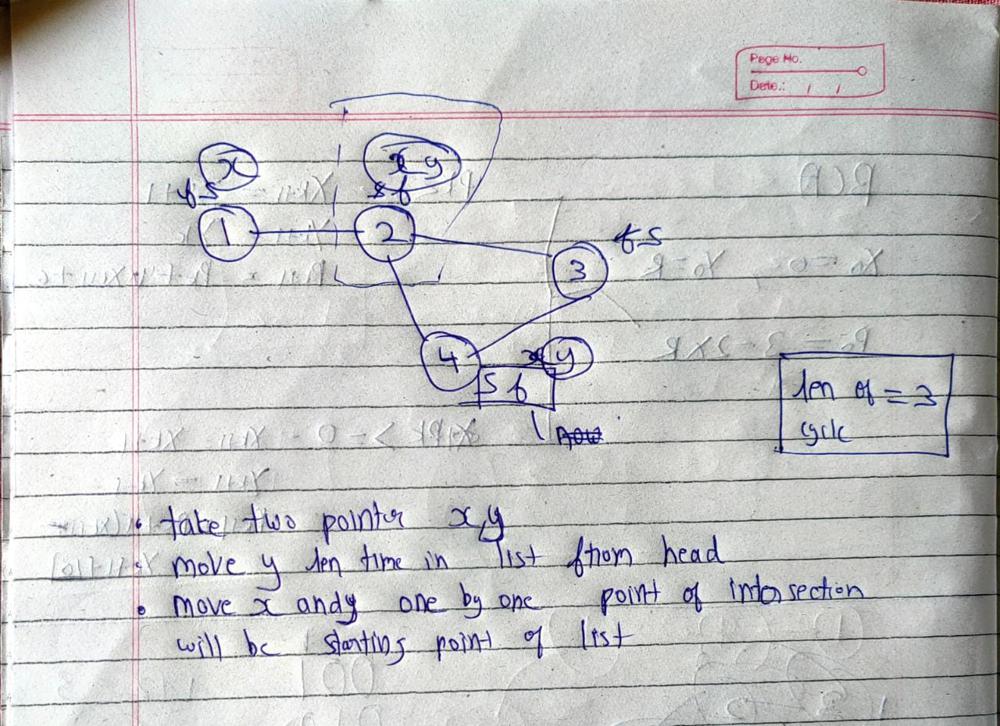 Page No.
Date.: / /
x
x y
f s
s f
1
2
3
f s
4
x y
s f
len of = 3
cycle
• take two pointer x,y
• move y len time in list from head
• move x and y one by one point of intersection
will be starting point of list